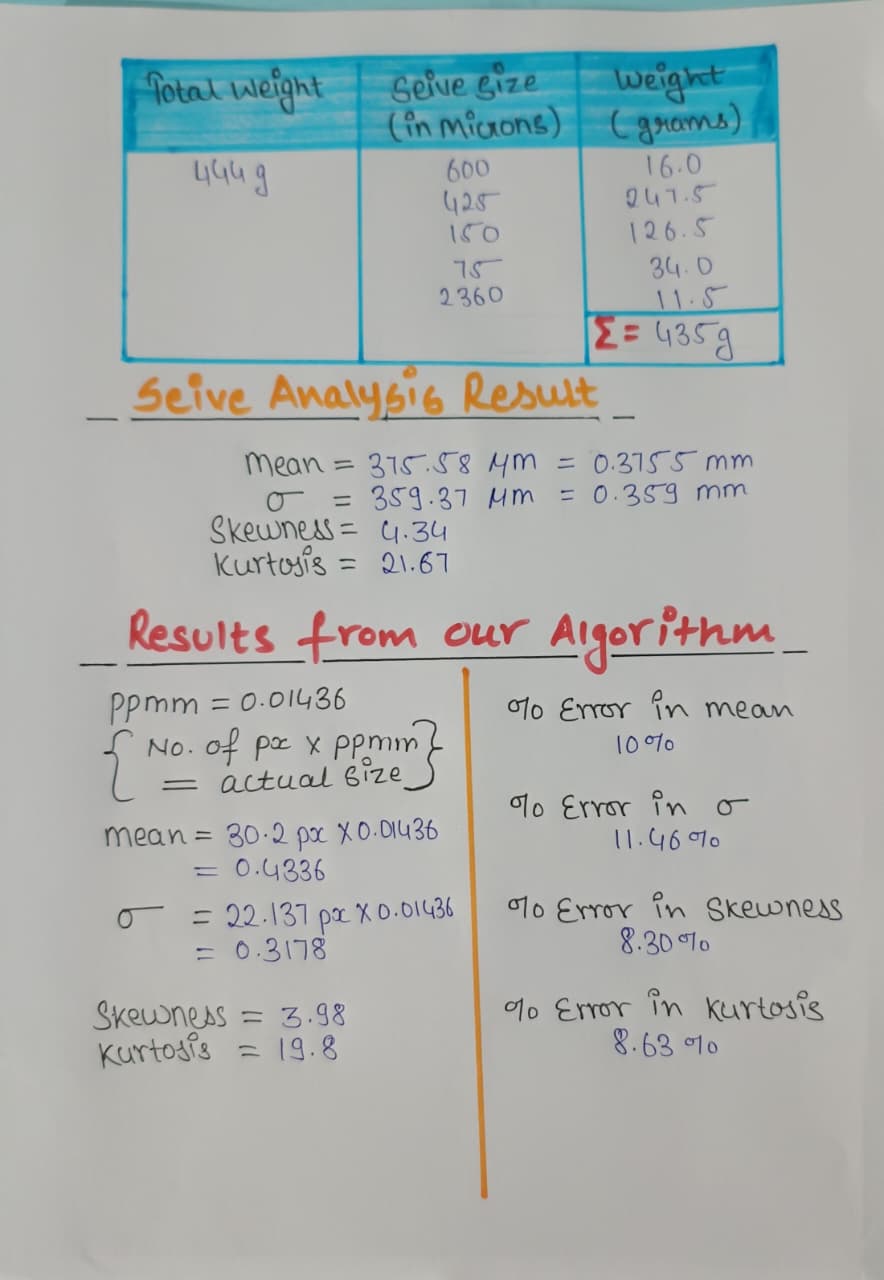 Total Weight
Seive Size
(in Microns)
Weight
(grams)
444 g
600
16.0
425
247.5
150
126.5
75
34.0
2360
11.5
Σ = 435g
Seive Analysis Result
Mean = 375.58 μm = 0.3755 mm
σ = 359.37 μm = 0.359 mm
Skewness = 4.34
Kurtosis = 21.67
Results from our Algorithm
ppmm = 0.01436
{ No. of px x ppmm
= actual size }
mean = 30.2 px x 0.01436
= 0.4336
σ = 22.137 px x 0.01436
= 0.3178
Skewness = 3.98
Kurtosis = 19.8
% Error in mean
10%
% Error in σ
11.46%
% Error in Skewness
8.30%
% Error in Kurtosis
8.63%